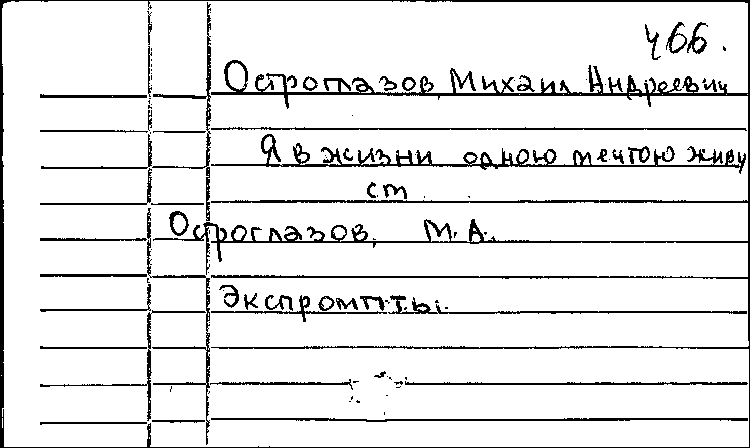 466.
Остроглазов, Михаил Андреевич
Я в жизни одною мечтою живу
ст
Остроглазов, М.А.
Экспромпты.